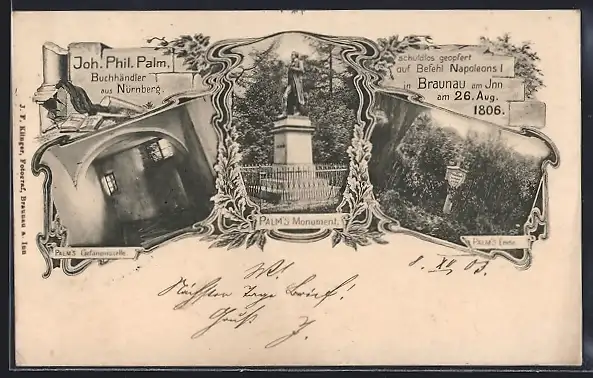 Joh. Phil. Palm,
Buchhändler
aus Nürnberg,
schuldlos geopfert
auf Befehl Napoleons I
in Braunau am Jnn
am 26. Aug.
1806.
PALM'S Gefängniszelle.
PALM'S Monument.
PALM'S Ende.
J. F. Klinger, Fotograf, Braunau a. Inn
8. XII. 03.
W!
Nächster Tage Brief!
Gruß
J.